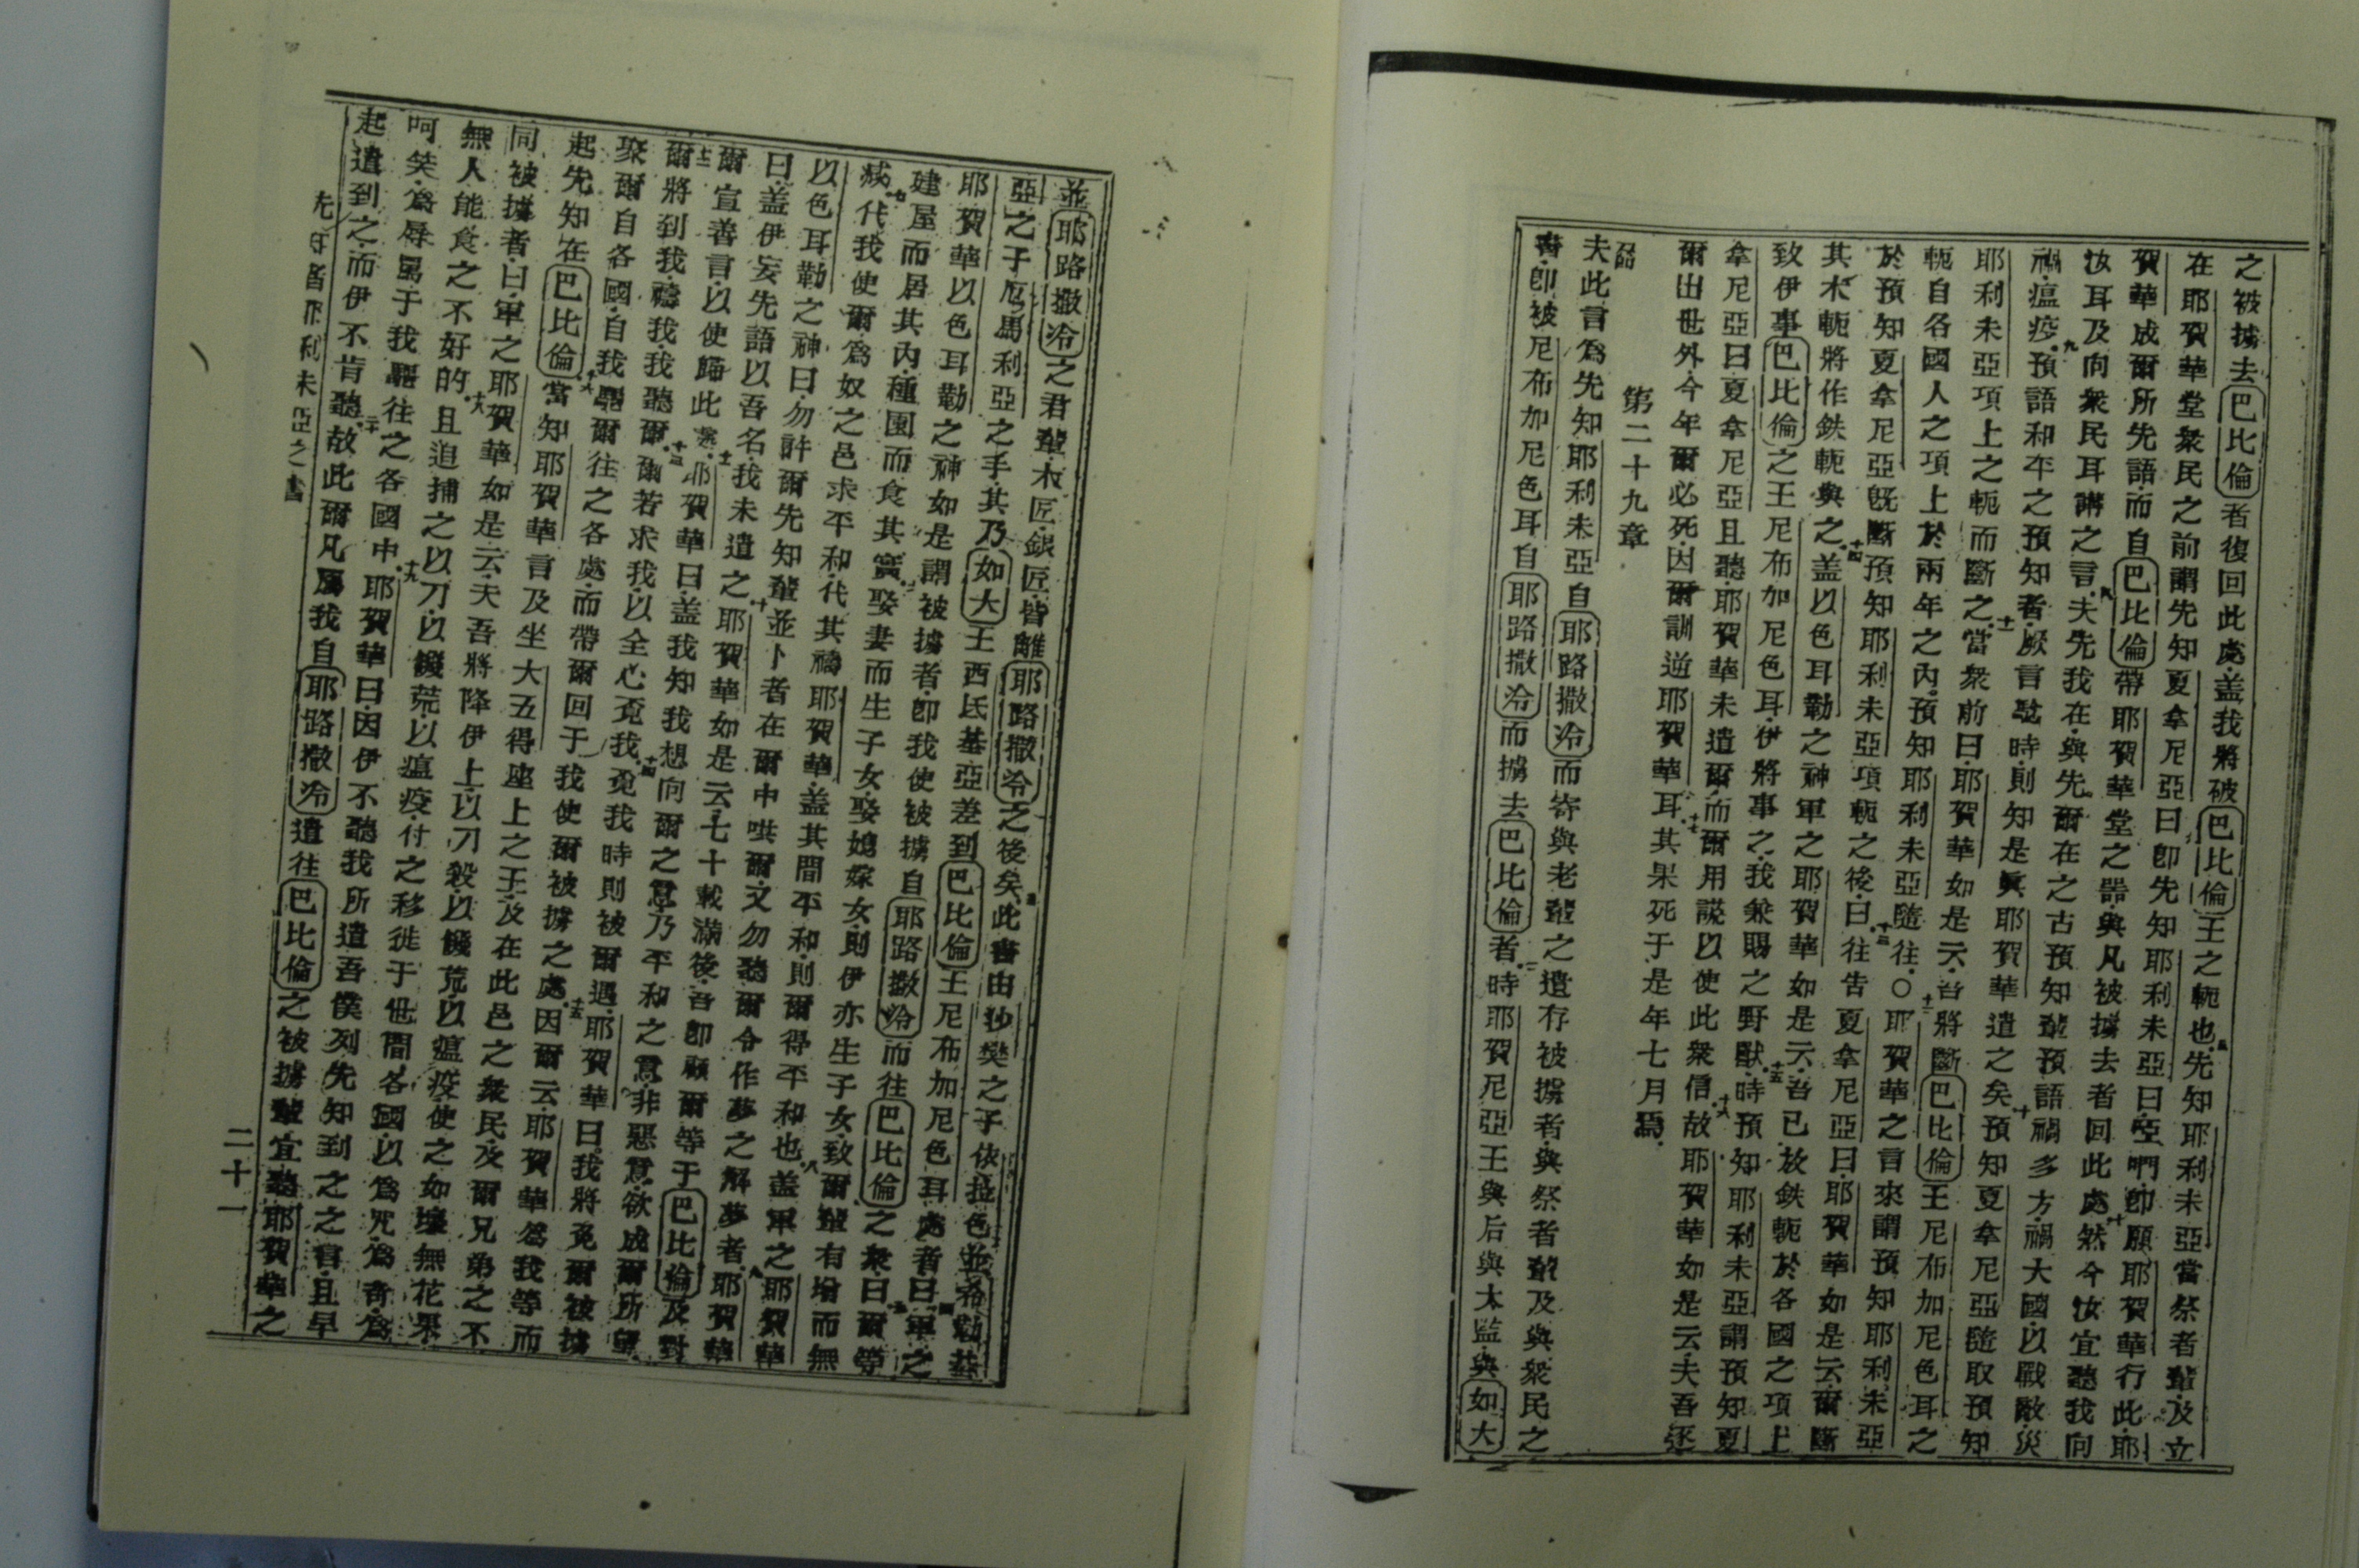 之被擄去巴比倫者復回此處盖我將被巴比倫王之軛也五先知耶利未亞當祭者輩及立
在耶賀華堂衆民之前謂先知夏拿尼亞曰卽先知耶利未亞曰啞們卽願耶賀華行此耶
賀華成爾所先語而自巴比倫帶耶賀華堂之器與凡被擄去者回此處然今汝宜聽我向
汝耳及向衆民耳講之言八夫先我在與先爾在之古預知輩預語禍多方禍大國以戰敵災
禍瘟疫九預語和平之預知者厥言騐時則知是眞耶賀華遣之矣十預知夏拿尼亞隨取預知
耶利未亞項上之軛而斷之十一當衆前曰耶賀華如是云吾將斷巴比倫王尼布加尼色耳之
軛自各國人之項上於兩年之內預知耶利未亞隨往○十二耶賀華之言來謂預知耶利未亞
於預知夏拿尼亞旣斷預知耶利未亞項軛之後曰十三往告夏拿尼亞曰耶賀華如是云爾斷
其木軛將作鉄軛與之十四盖以色耳勒之神軍之耶賀華如是云吾已放鉄軛於各國之項上
致伊事巴比倫之王尼布加尼色耳伊將事之我兼賜之野獸十五時預知耶利未亞謂預知夏
拿尼亞曰夏拿尼亞且聽耶賀華未遣爾而爾用謊以使此衆信十六故耶賀華如是云夫吾逐
爾出世外今年爾必死因爾訓逆耶賀華耳十七其果死于是年七月焉
第二十九章
夫此言爲先知耶利未亞自耶路撒冷而寄與老輩之遺存被擄者與祭者輩及與衆民之
書卽被尼布加尼色耳自耶路撒冷而擄去巴比倫者二時耶賀尼亞王與后與太監與如大
並耶路撒冷之君輩木匠銀匠皆離耶路撒冷之後矣三此書由沙樊之子依拉色並希勒基
亞之子厄馬利亞之手其乃如大王西氐基亞差到巴比倫王尼布加尼色耳處者曰四軍之
耶賀華以色耳勒之神如是謂被擄者卽我使被擄自耶路撒冷而往巴比倫之衆曰五爾等
建屋而居其內種園而食其實六娶妻而生子女娶媳嫁女則伊亦生子女致爾輩有增而無
減七代我使爾爲奴之邑求平和代其禱耶賀華盖其間平和則爾得平和也八盖軍之耶賀華
以色耳勒之神曰勿許爾先知輩並卜者在爾中哄爾又勿聽爾令作夢之解夢者九耶賀華
曰盖伊妄先語以吾名我未遣之十耶賀華如是云七十載滿後吾卽顧爾等于巴比倫及對
爾宣善言以使歸此處十一耶賀華曰盖我知我想向爾之意乃平和之意非惡意欲成爾所望
十二爾將到我禱我我聽爾十三爾若求我以全心覓我十四覓我時則被爾遇耶賀華曰我將免爾被擄
聚爾自各國自我驅爾往之各處而帶爾回于我使爾被擄之處十五因爾云耶賀華爲我等而
起先知在巴比倫十六當知耶賀華言及坐大五得座上之王及在此邑之衆民及爾兄弟之不
同被擄者曰十七軍之耶賀華如是云夫吾將降伊上以刀殺以饑荒以瘟疫使之如壞無花果
無人能食之不好的十八且追捕之以刀以饑荒以瘟疫付之移徙于世間各國以爲咒爲奇爲
呵笑爲辱罵于我驅往之各國中十九耶賀華曰因伊不聽我所遣吾僕列先知到之之言且早
起遣到之而伊不肯聽二十故此爾凡爲我自耶路撒冷遣往巴比倫之被擄輩宜聽耶賀華之
先知者耶利未亞之書
二十一